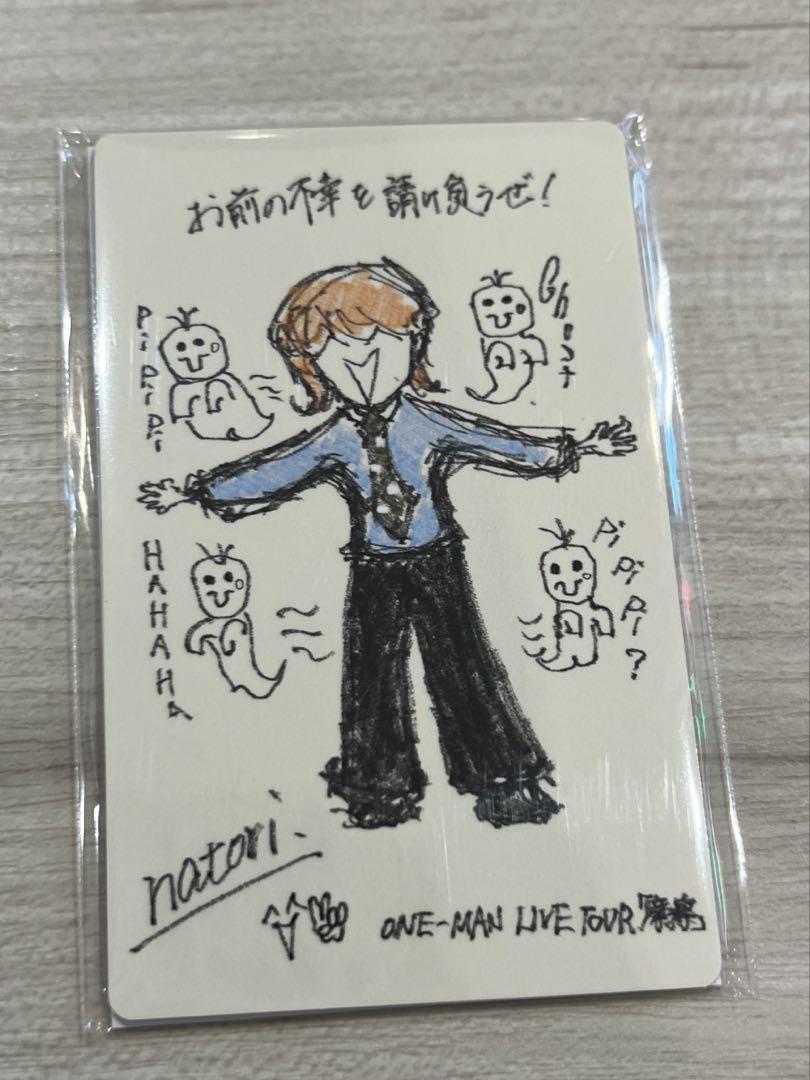 お前の不幸を請け負うぜ!
Pii Pii Pii
Ghost
HAHAHAHA
Pi Pi Pi?
natori.
ONE-MAN LIVE TOUR 『摩擦』